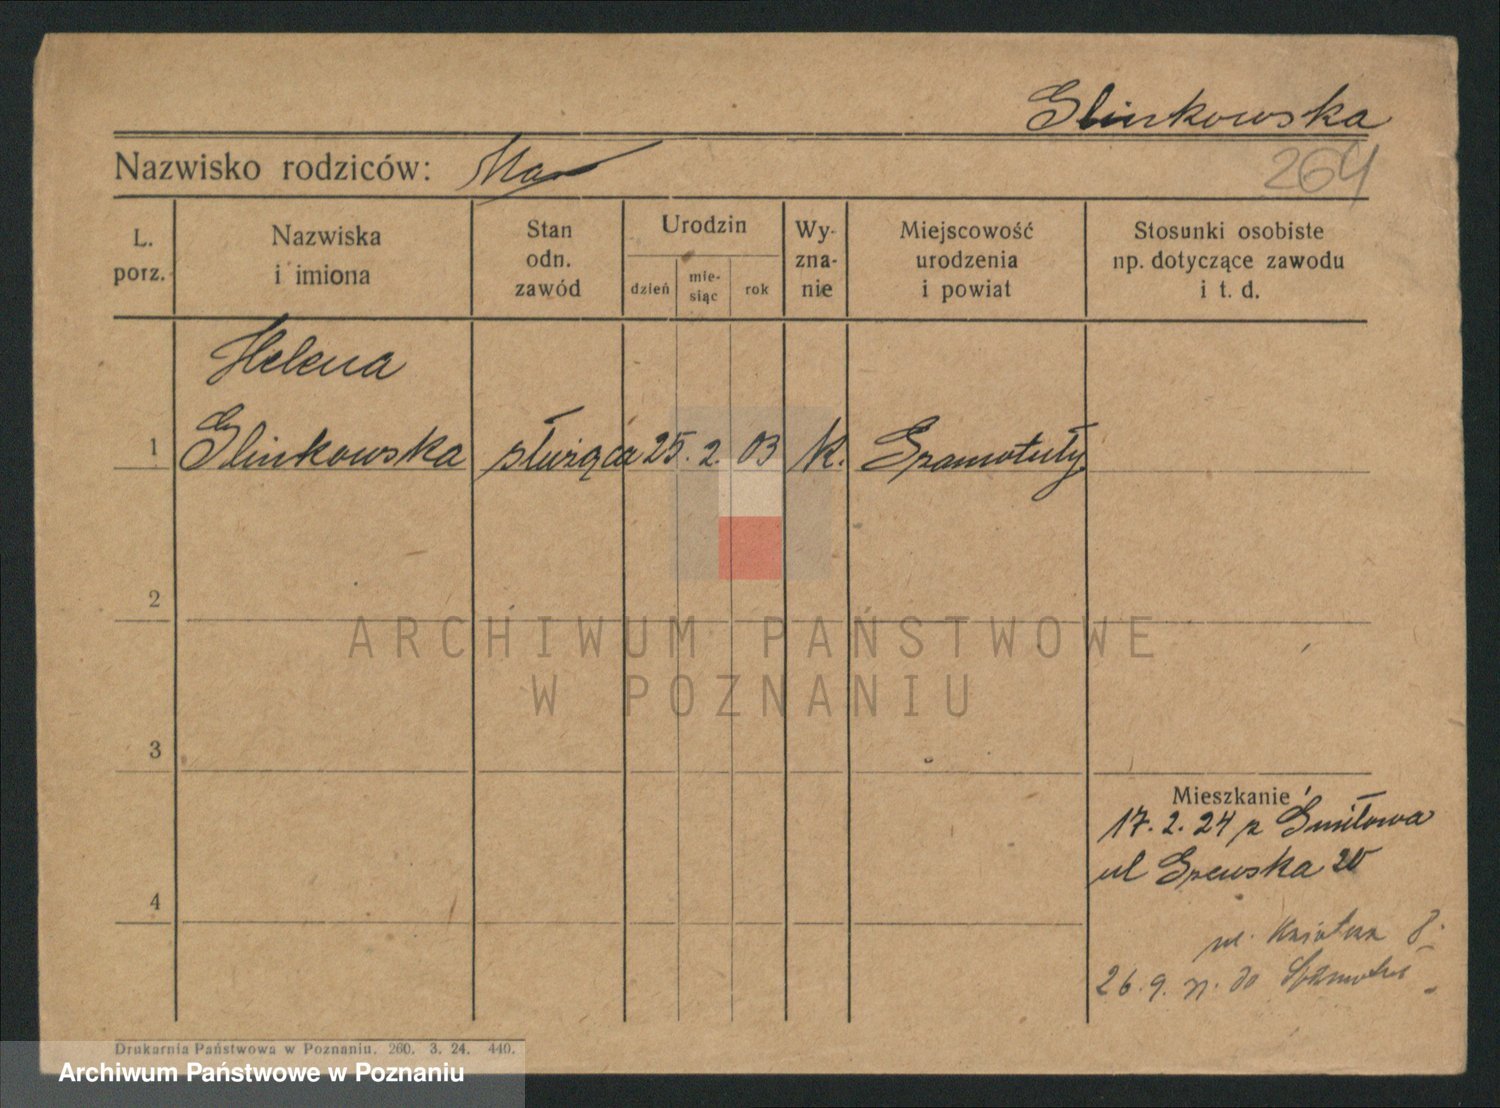 Glinkowska
Nazwisko rodziców:
264
L. porz.
Nazwiska i imiona
Stan odn. zawód
Urodzin
dzień
mie-siąc
rok
Wy-zna-nie
Miejscowość urodzenia i powiat
Stosunki osobiste np. dotyczące zawodu i t. d.
Helena
1 Glinkowska służąca 25. 2. 03 k. Szamotuły
2
ARCHIWUM PAŃSTWOWE
W POZNANIU
3
Mieszkanie
17. 2. 24 z Smiłowa
ul Szewska 20
4
ul. 8.
26. 9. do
Drukarnia Państwowa w Poznaniu. 260. 3. 24. 440.
Archiwum Państwowe w Poznaniu